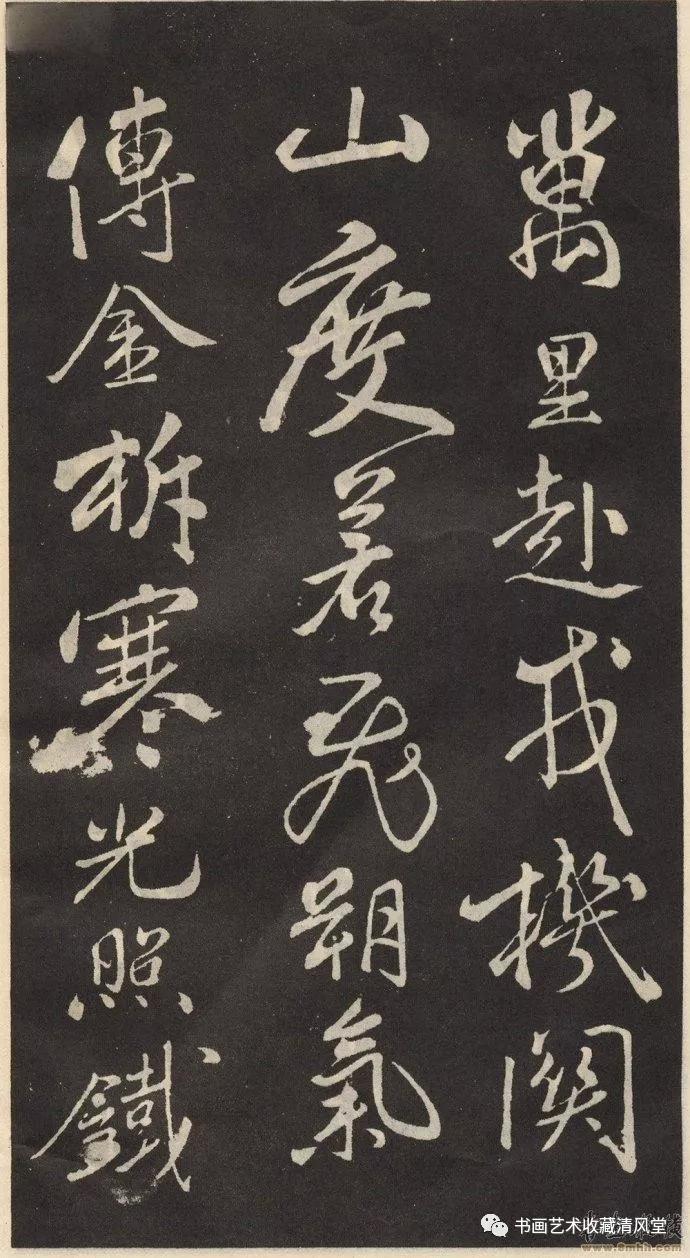 萬里赴戎機關
山度若飛朔氣
傳金柝寒光照鐵
书画艺术收藏清风堂